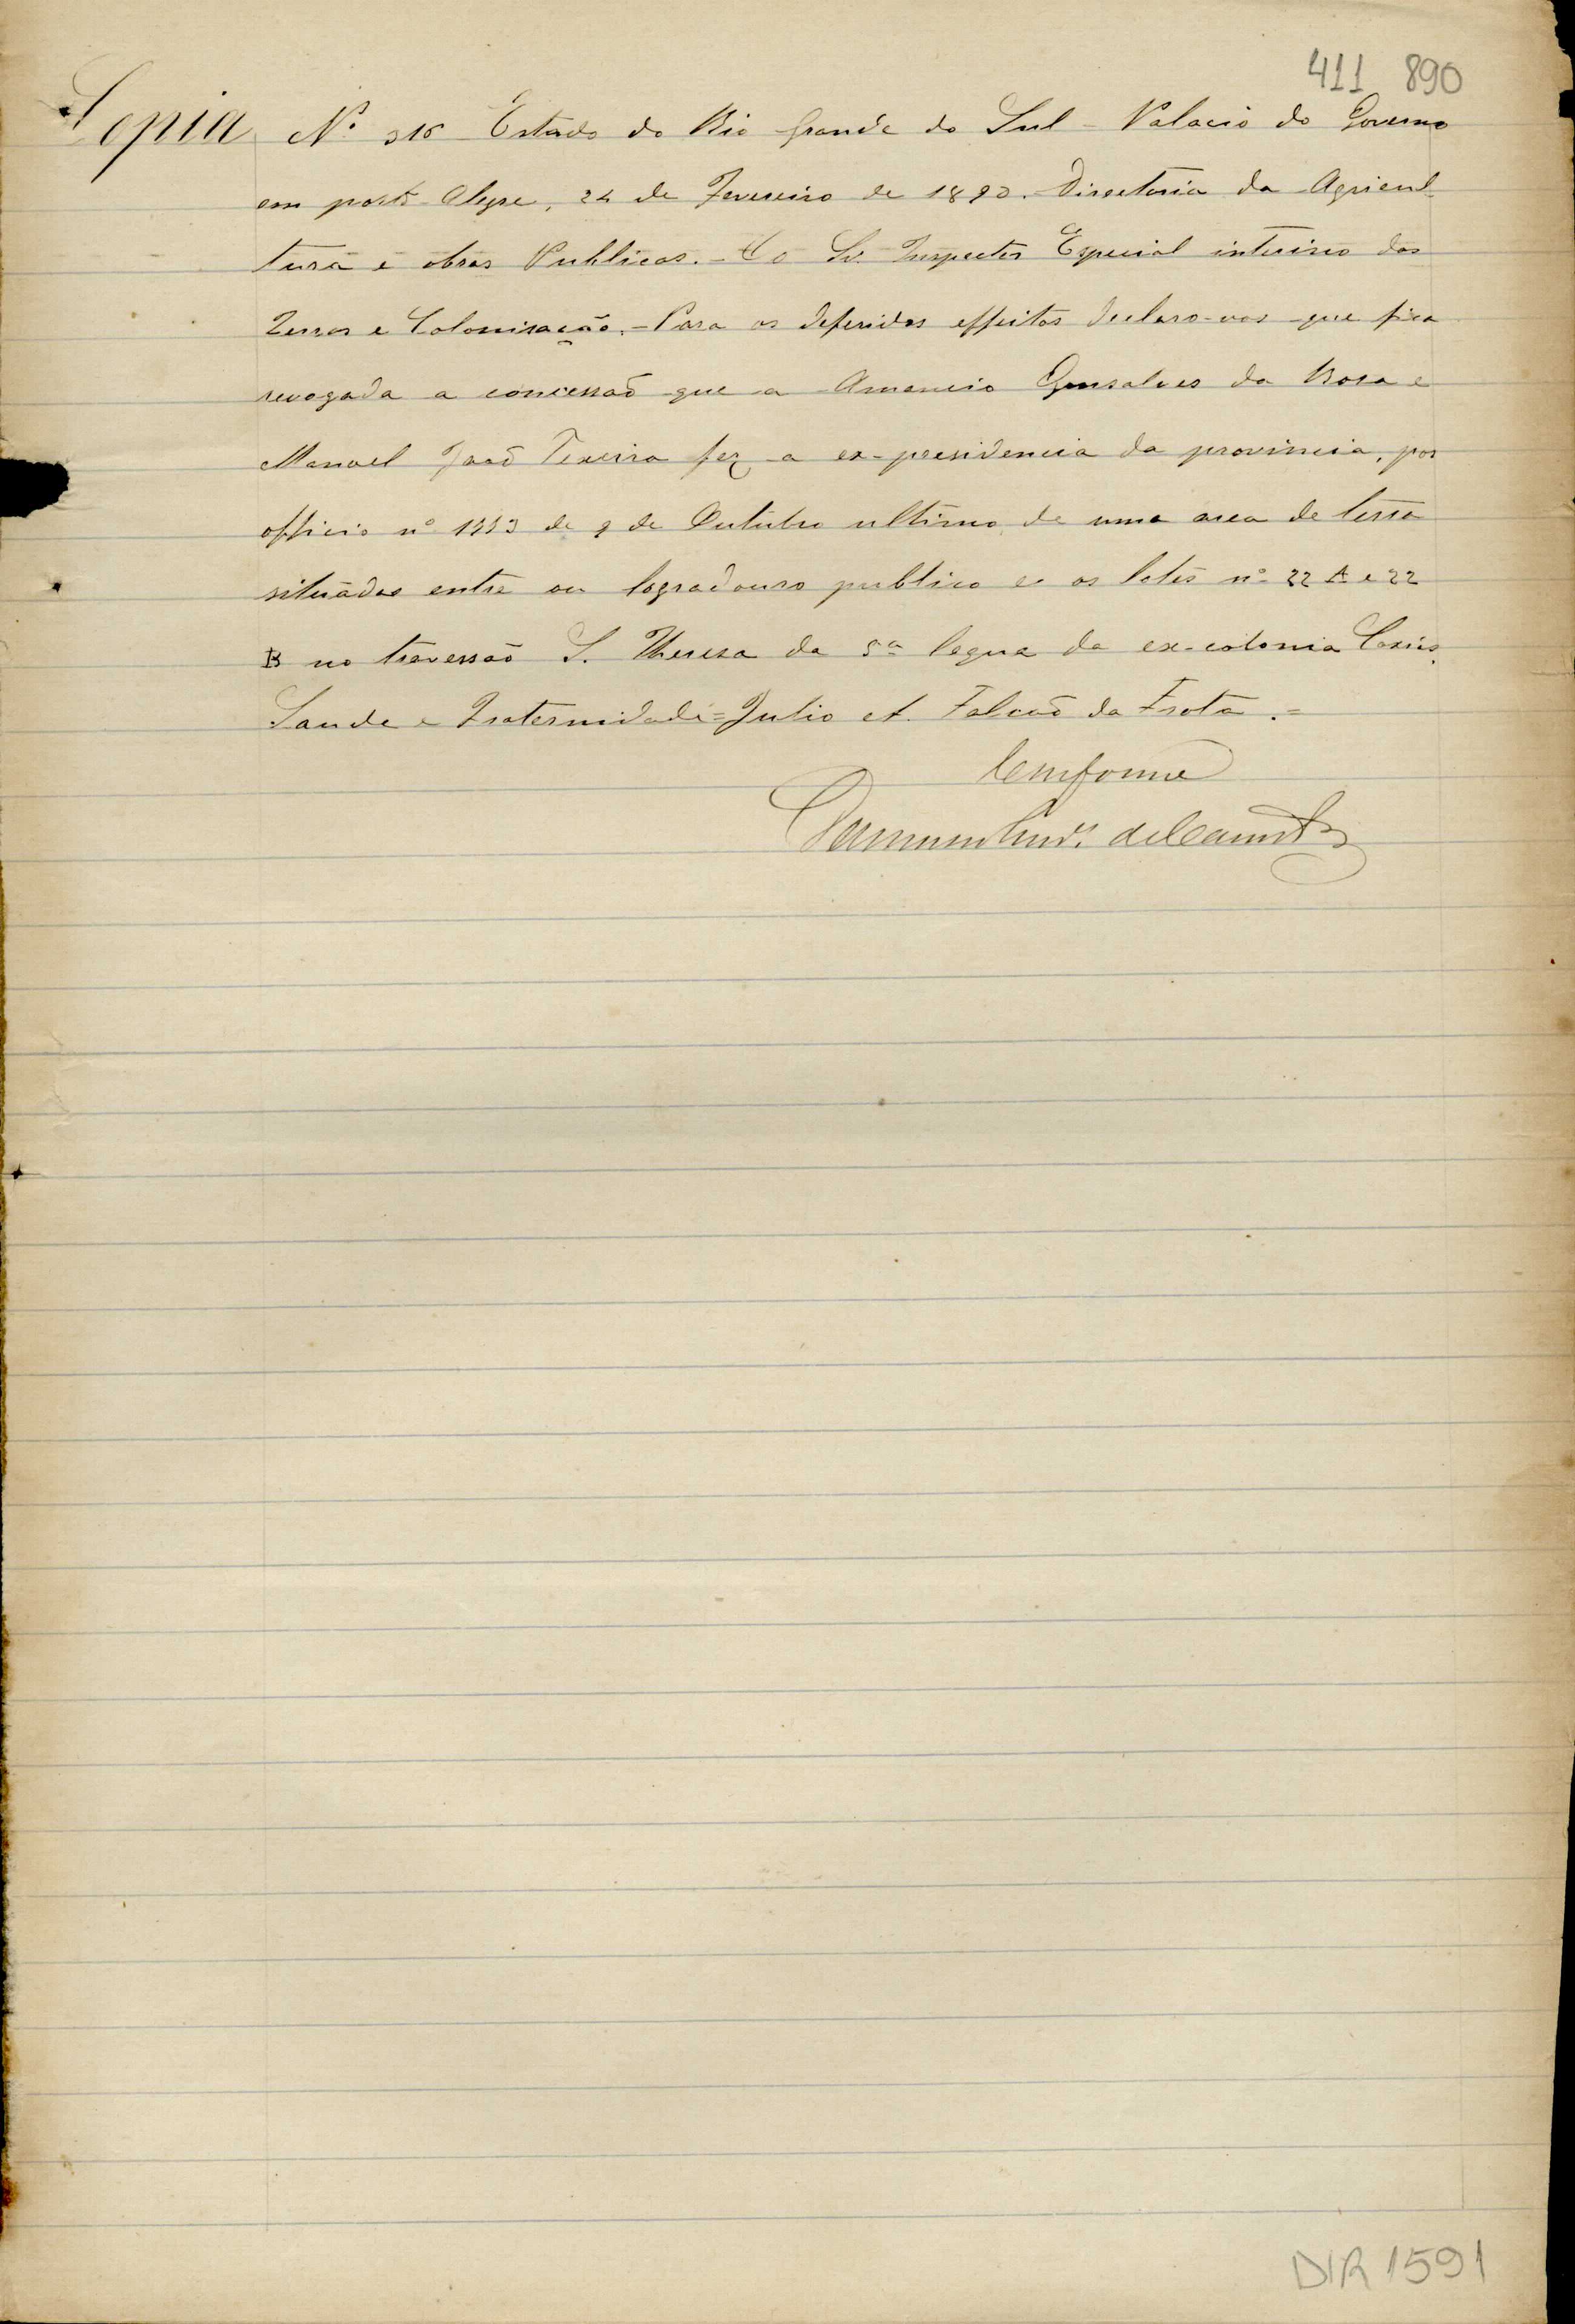 411 890
Copia Nº 316 Estado do Rio Grande do Sul – Palacio do Governo
em porto Alegre, 24 de Fevereiro de 1890. – Directoria da Agricul-
tura e obras Publicas. – Ao Sr. Inspector Especial interino das
Terras e Colonisação. – Para os deferidos effeitos declaro-vos que fica
revogada a concessaõ que a Amancio Gonsalves da Rosa e
Manoel Joaõ Texeira fez a ex-presidencia da provincia, por
officio nº 1993 de 9 de Outubro ultimo de uma area de terra
situadas entre ou logradouro publico e os lotes nº 22 A e 22
B no travessaõ S. Thereza da 5ª legua da ex-colonia Caxias.
Saude e Fraternidade = Julio A. Falcaõ da Frota. =
Conforme
DIR 1591